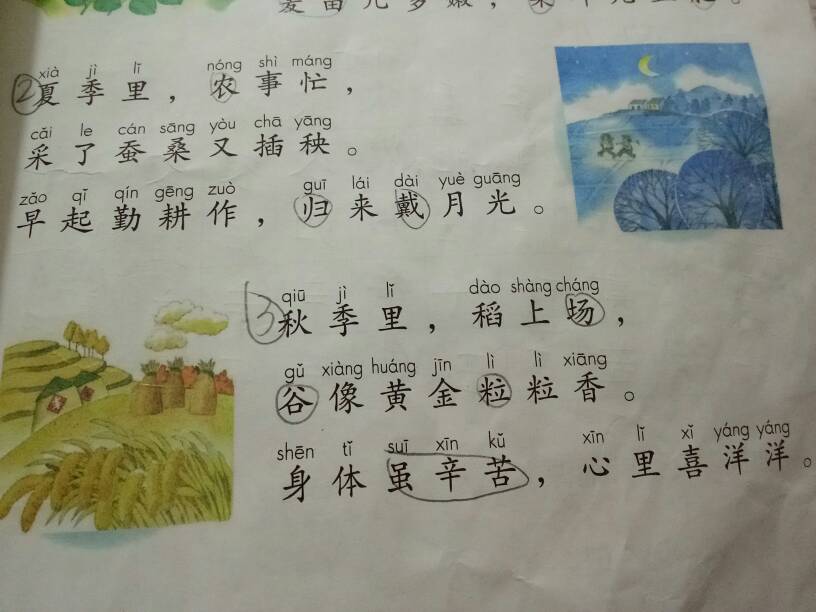 xià jì lǐ nóng shì máng
②夏季里，农事忙，
cǎi le cán sāng yòu chā yāng
采了蚕桑又插秧。
zǎo qǐ qín gēng zuò guī lái dài yuè guāng
早起勤耕作，归来戴月光。
qiū jì lǐ dào shàng cháng
③秋季里，稻上场，
gǔ xiàng huáng jīn lì lì xiāng
谷像黄金粒粒香。
shēn tǐ suī xīn kǔ xīn lǐ xǐ yáng yáng
身体虽辛苦，心里喜洋洋。